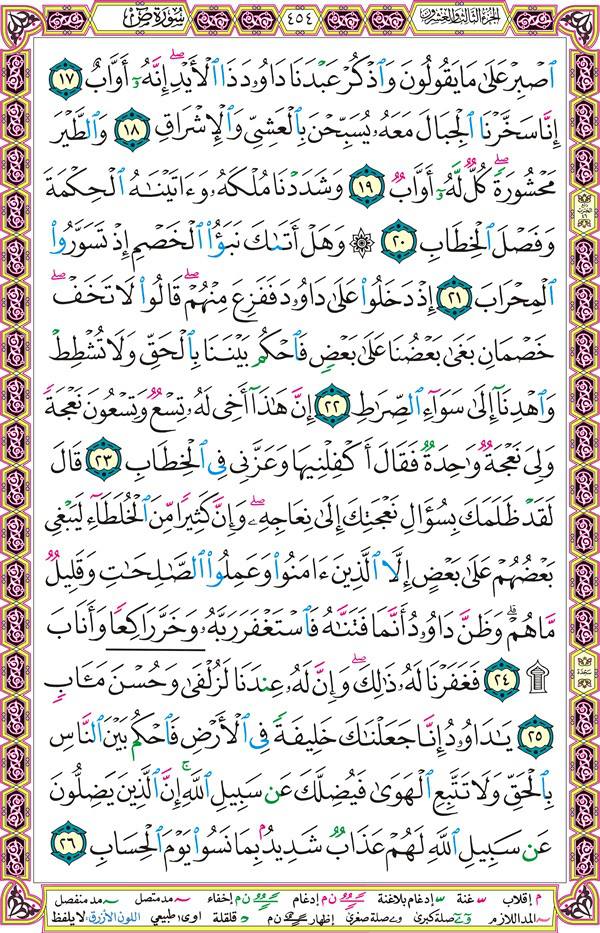 الجزء الثالث والعشرون ٤٥٤ سورة ص
ٱصۡبِرۡ عَلَىٰ مَا يَقُولُونَ وَٱذۡكُرۡ عَبۡدَنَا دَاوُۥدَ ذَا ٱلۡأَيۡدِۖ إِنَّهُۥٓ أَوَّابٌ ١٧
إِنَّا سَخَّرۡنَا ٱلۡجِبَالَ مَعَهُۥ يُسَبِّحۡنَ بِٱلۡعَشِيِّ وَٱلۡإِشۡرَاقِ ١٨ وَٱلطَّيۡرَ
مَحۡشُورَةٗۖ كُلّٞ لَّهُۥٓ أَوَّابٞ ١٩ وَشَدَدۡنَا مُلۡكَهُۥ وَءَاتَيۡنَٰهُ ٱلۡحِكۡمَةَ
وَفَصۡلَ ٱلۡخِطَابِ ٢٠ ۞ وَهَلۡ أَتَىٰكَ نَبَؤُاْ ٱلۡخَصۡمِ إِذۡ تَسَوَّرُواْ
ٱلۡمِحۡرَابَ ٢١ إِذۡ دَخَلُواْ عَلَىٰ دَاوُۥدَ فَفَزِعَ مِنۡهُمۡۖ قَالُواْ لَا تَخَفۡۖ
خَصۡمَانِ بَغَىٰ بَعۡضُنَا عَلَىٰ بَعۡضٖ فَٱحۡكُم بَيۡنَنَا بِٱلۡحَقِّ وَلَا تُشۡطِطۡ
وَٱهۡدِنَآ إِلَىٰ سَوَآءِ ٱلصِّرَٰطِ ٢٢ إِنَّ هَٰذَآ أَخِي لَهُۥ تِسۡعٞ وَتِسۡعُونَ نَعۡجَةٗ
وَلِيَ نَعۡجَةٞ وَٰحِدَةٞ فَقَالَ أَكۡفِلۡنِيهَا وَعَزَّنِي فِي ٱلۡخِطَابِ ٢٣ قَالَ
لَقَدۡ ظَلَمَكَ بِسُؤَالِ نَعۡجَتِكَ إِلَىٰ نِعَاجِهِۦۖ وَإِنَّ كَثِيرٗا مِّنَ ٱلۡخُلَطَآءِ لَيَبۡغِي
بَعۡضُهُمۡ عَلَىٰ بَعۡضٍ إِلَّا ٱلَّذِينَ ءَامَنُواْ وَعَمِلُواْ ٱلصَّٰلِحَٰتِ وَقَلِيلٞ
مَّا هُمۡۗ وَظَنَّ دَاوُۥدُ أَنَّمَا فَتَنَّٰهُ فَٱسۡتَغۡفَرَ رَبَّهُۥ وَخَرَّ رَاكِعٗا وَأَنَابَ
۩ ٢٤ فَغَفَرۡنَا لَهُۥ ذَٰلِكَۖ وَإِنَّ لَهُۥ عِندَنَا لَزُلۡفَىٰ وَحُسۡنَ مَـَٔابٖ
٢٥ يَٰدَاوُۥدُ إِنَّا جَعَلۡنَٰكَ خَلِيفَةٗ فِي ٱلۡأَرۡضِ فَٱحۡكُم بَيۡنَ ٱلنَّاسِ
بِٱلۡحَقِّ وَلَا تَتَّبِعِ ٱلۡهَوَىٰ فَيُضِلَّكَ عَن سَبِيلِ ٱللَّهِۚ إِنَّ ٱلَّذِينَ يَضِلُّونَ
عَن سَبِيلِ ٱللَّهِ لَهُمۡ عَذَابٞ شَدِيدُۢ بِمَا نَسُواْ يَوۡمَ ٱلۡحِسَابِ ٢٦
سجدة
م إقلاب غنة إدغام بلاغنة ن م إدغام ن م إخفاء مد متصل مد منفصل
المد اللازم صلة كبرى صلة صغرى إظهار ن م قلقلة اوى طبيعي اللون الأزرق: لا يلفظ